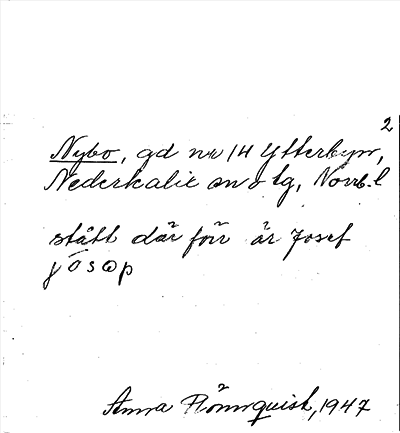 2
Nybo, gd nr 14 Ytterbyn,
Nederkalix sn o tg, Norrb. l
stått där för är Josef
jōsəp
Anna Rönnquist, 1947